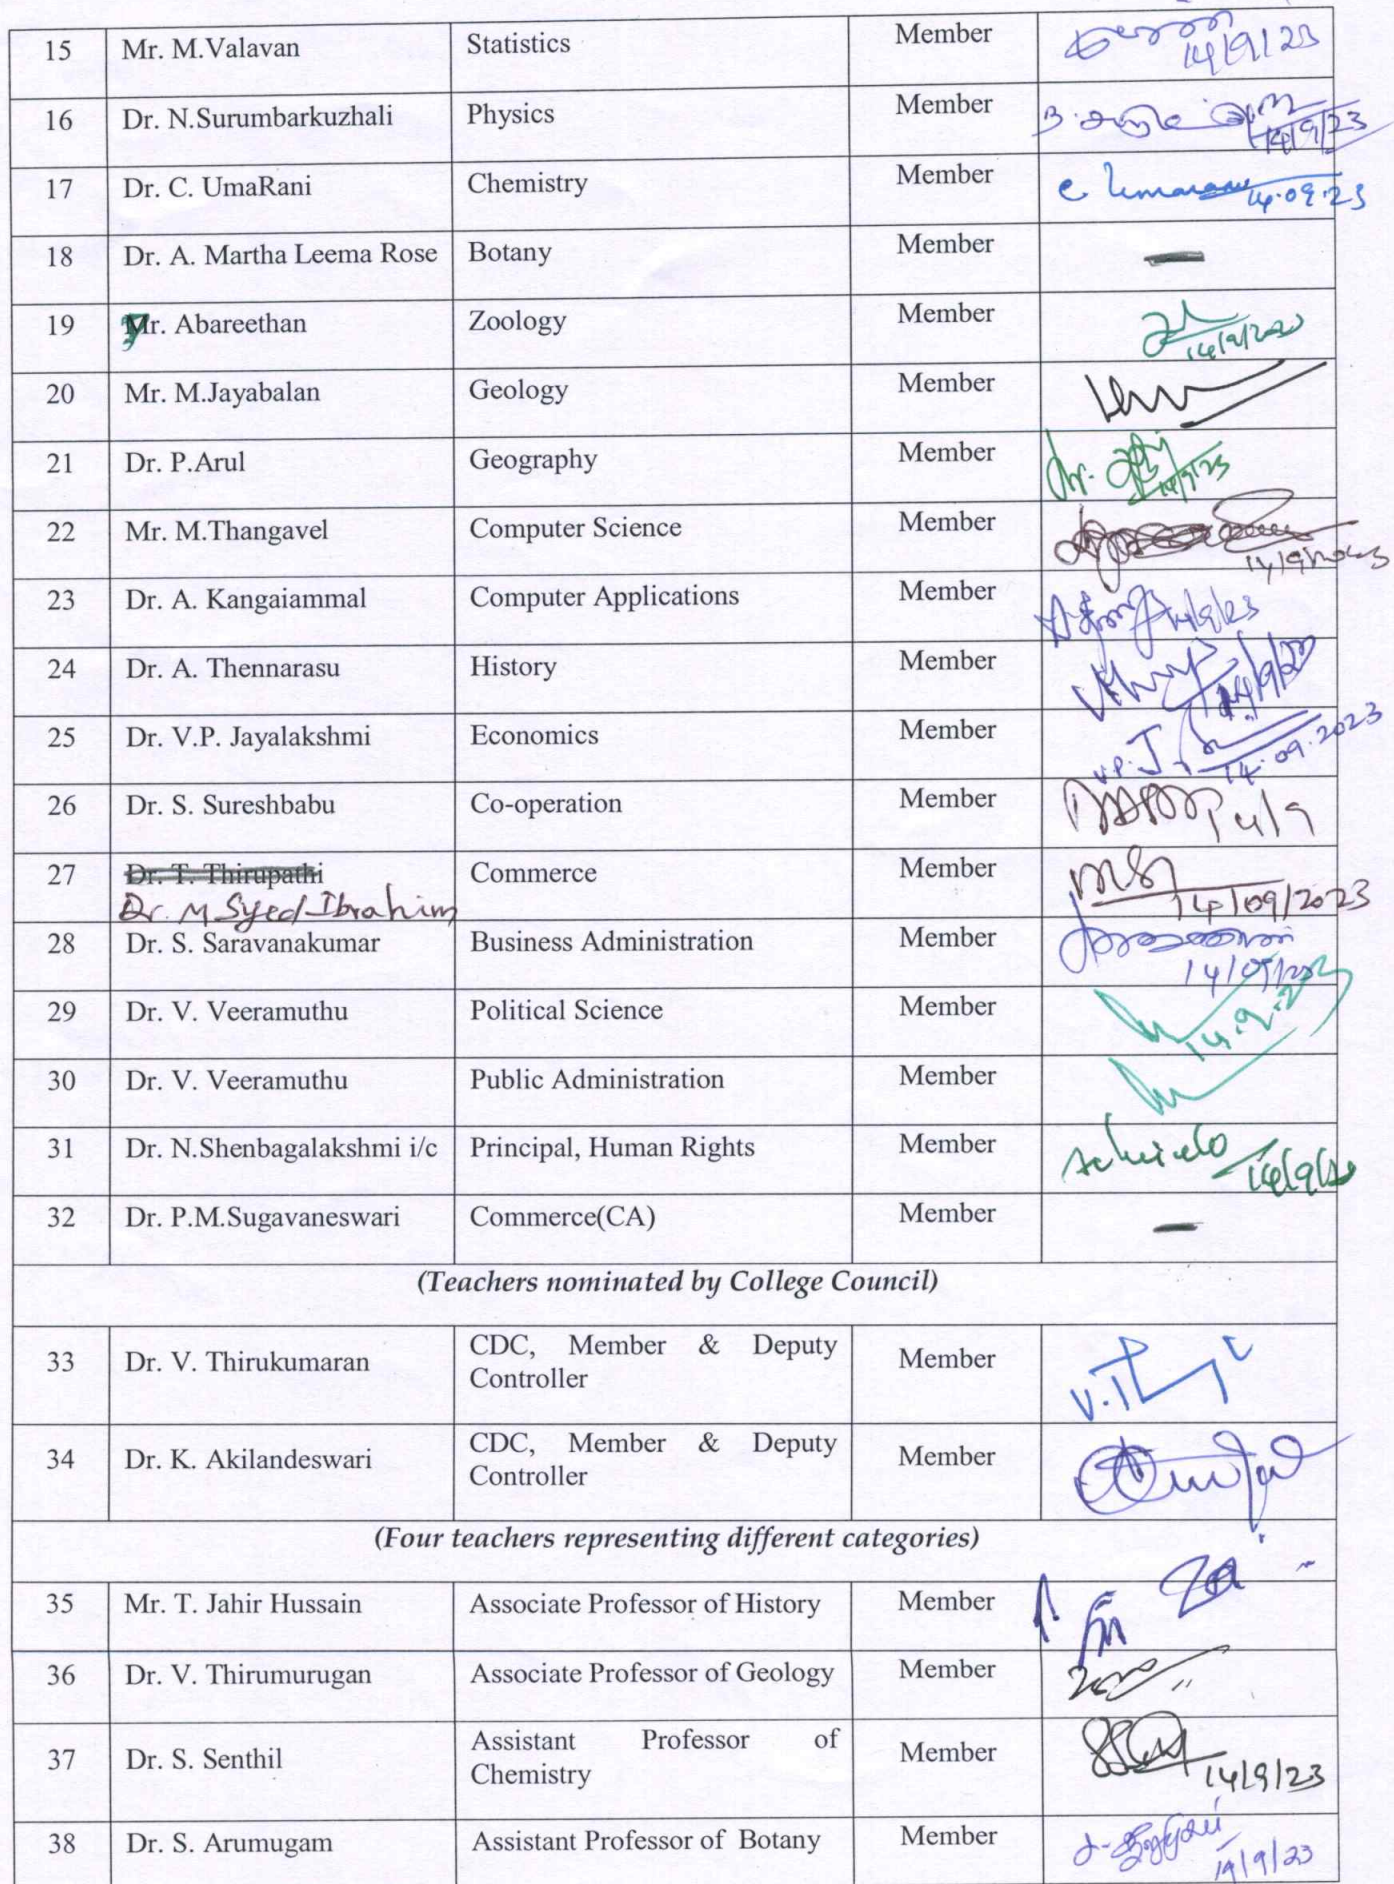 15 Mr. M.Valavan Statistics Member 14/9/23
16 Dr. N.Surumbarkuzhali Physics Member 14/9/23
17 Dr. C. UmaRani Chemistry Member C. Umarani 14.09.23
18 Dr. A. Martha Leema Rose Botany Member —
19 Mr. Abareethan Zoology Member
20 Mr. M.Jayabalan Geology Member
21 Dr. P.Arul Geography Member 14/9/23
22 Mr. M.Thangavel Computer Science Member 14/9/2023
23 Dr. A. Kangaiammal Computer Applications Member 14/9/23
24 Dr. A. Thennarasu History Member 14/9/23
25 Dr. V.P. Jayalakshmi Economics Member V.P. J 14.09.2023
26 Dr. S. Sureshbabu Co-operation Member 14/9
27 Dr. T. Thirupathi Commerce Member 14/09/2023
Dr. M Syed Ibrahim
28 Dr. S. Saravanakumar Business Administration Member
29 Dr. V. Veeramuthu Political Science Member 14.9.23
30 Dr. V. Veeramuthu Public Administration Member
31 Dr. N.Shenbagalakshmi i/c Principal, Human Rights Member
32 Dr. P.M.Sugavaneswari Commerce(CA) Member —
(Teachers nominated by College Council)
33 Dr. V. Thirukumaran CDC, Member & Deputy Member
Controller
34 Dr. K. Akilandeswari CDC, Member & Deputy Member
Controller
(Four teachers representing different categories)
35 Mr. T. Jahir Hussain Associate Professor of History Member
36 Dr. V. Thirumurugan Associate Professor of Geology Member
37 Dr. S. Senthil Assistant Professor of Member 14/9/23
Chemistry
38 Dr. S. Arumugam Assistant Professor of Botany Member 14/9/23